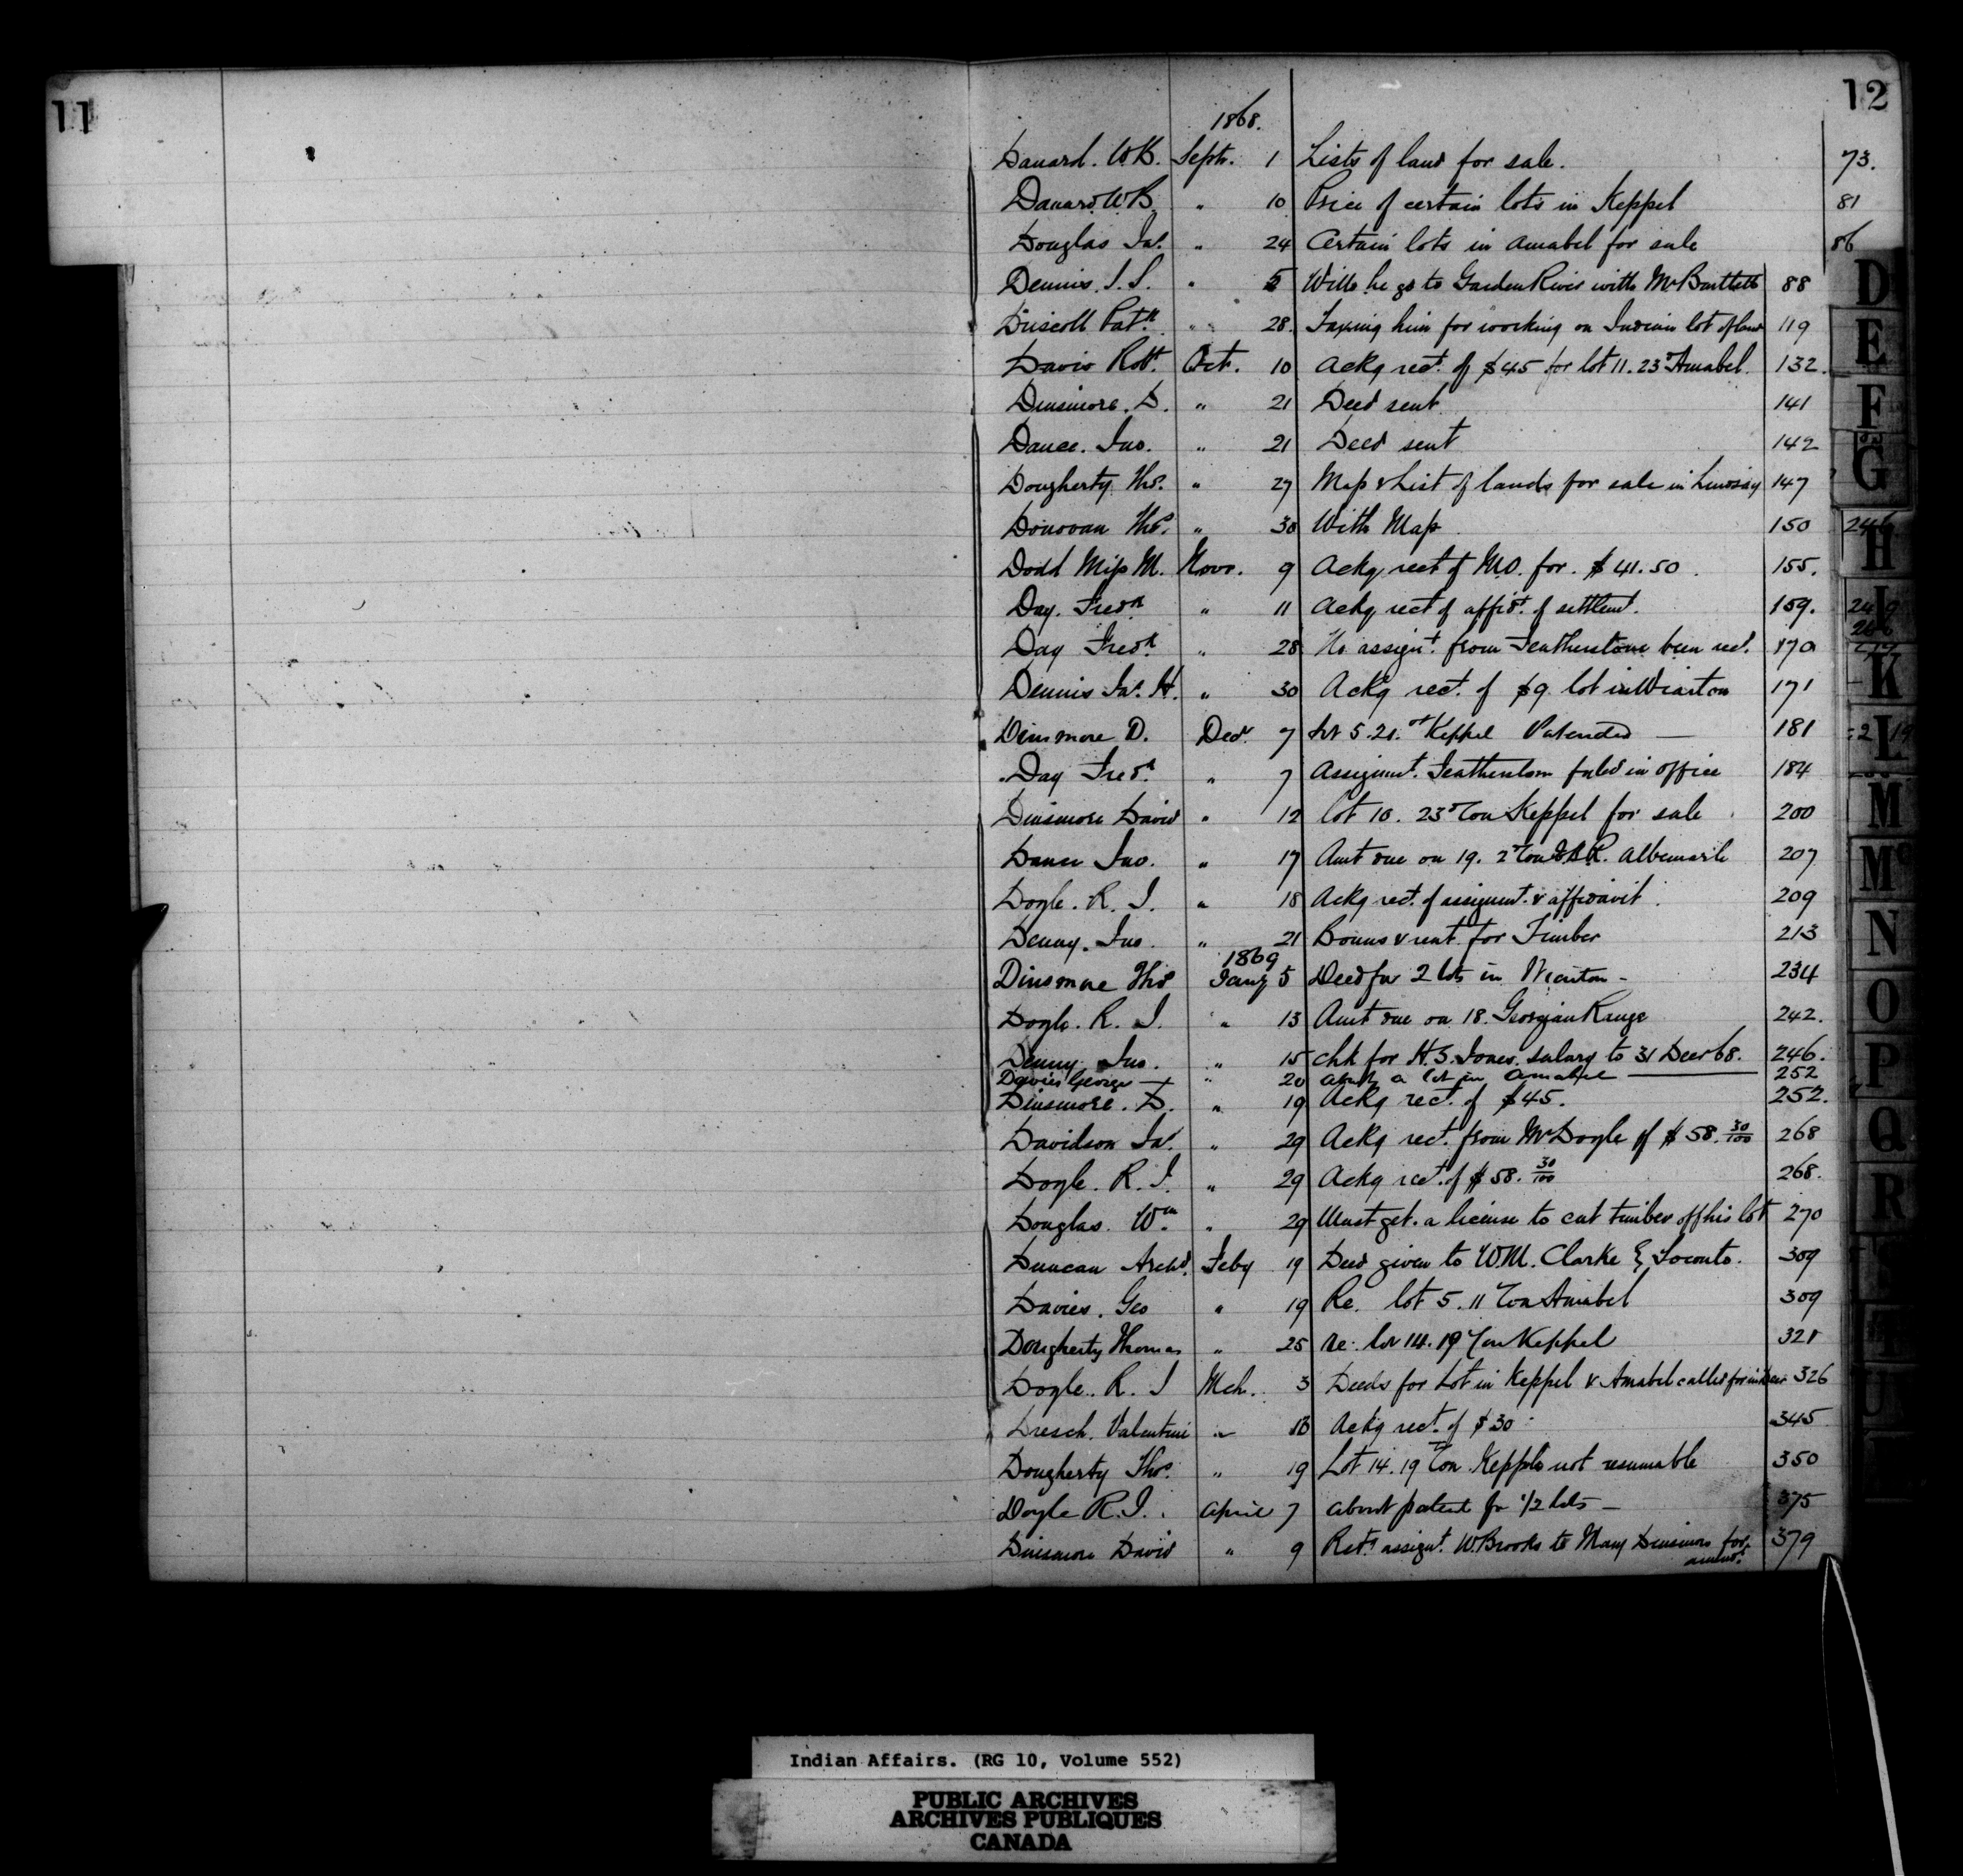 11
12
1868.
Danard. W.B. Septr. 1 Lists of land for sale. 73.
Danard W.B. " 10 Price of certain lots in Keppel 81
Douglas Jas. " 24 Certain lots in Amabel for sale 86
Dennis. J.S. " 5 Will he go to Garden River with Mr Bartlett 88
Driscoll Patk " 28. Taxing him for working on Indian lot of land 119
Davis Robt. Oct. 10 Ackg rect. of $45 for lot 11. 23d Amabel. 132.
Dinsmore. D. " 21 Deed sent 141
Dance. Jno. " 21 Deed sent 142
Dougherty Thos. " 27 Map & List of lands for sale in Lindsay 147
Donovan Thos. " 30 With Map 150
Dodd Miss M. Novr. 9 Ackg rect of M.O. for. $41.50. 155.
Day. Fredk " 11 Ackg rect of affidt. of settlemt. 159.
Day Fredk. " 28 No assignt. from Featherstone been recd. 170
Dennis Jas. H. " 30 Ackg rect. of $9 lot in Wiarton 171
Dinsmore D. Decr. 7 Lot 5. 21.st Keppel Patended — 181
Day Fredk. " 7 Assignmt. Featherston fyled in office 184
Dinsmore David " 12 lot 10. 23d Con Keppel for sale 200
Dance Jno. " 17 Amt due on 19. 2d Con E.B.R. Albemarle 207
Doyle. R. J. " 18 Ackg rect. of assignmt. & affidavit. 209
Denny. Jno. " 21 Bonus & rent for Timber 213
1869
Dinsmore Thos Jany 5 Deed for 2 lots in Wiarton — 234
Doyle. R. J. " 13 Amt due on 18. Georgian Range 242.
Denny Jno. " 15 chk for H.S. Jones. salary to 31 Decr 68. 246.
Davies George " 20 about a lot in Amabel — 252
Dinsmore. D. " 19 Ackg rect. of $45. 252.
Davidson Jas. " 29 Ackg rect. from Mr Doyle of $58. 30/100 268
Doyle. R. J. " 29 Ackg rect. of $58. 30/100 268.
Douglas. Wm. " 29 Must get. a license to cut timber off his lot 270
Duncan Archd. Feby 19 Deed given to W.M. Clarke Toronto. 309
Davies. Geo " 19 Re. lot 5. 11 Con Amabel 309
Dougherty Thomas " 25 re. lot 14. 19 Con Keppel 321
Doyle. R. J Mch. 3 Deeds for Lot in Keppel & Amabel called for in 326
Dresch. Valentine " Ackg rect. of $30. 345
Dougherty Thos. " 19 Lot 14. 19th Con. Kepple not resumable 350
Doyle R.J. April 7 about patent for 1/2 lots — 375
Dinsmore David " 9 Retg assignt. W. Brooks to Mary Dinsmore for 379
amendt.
D
E
F
G
H
I
K
L
M
Mc
N
O
P
Q
R
T
U
Indian Affairs. (RG 10, Volume 552)
PUBLIC ARCHIVES
ARCHIVES PUBLIQUES
CANADA